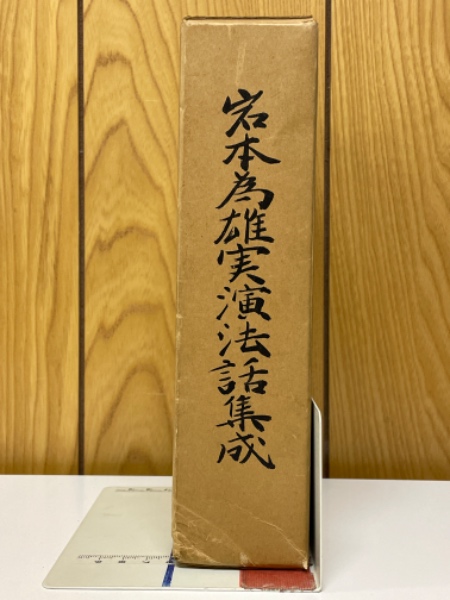 岩本為雄実演法話集成